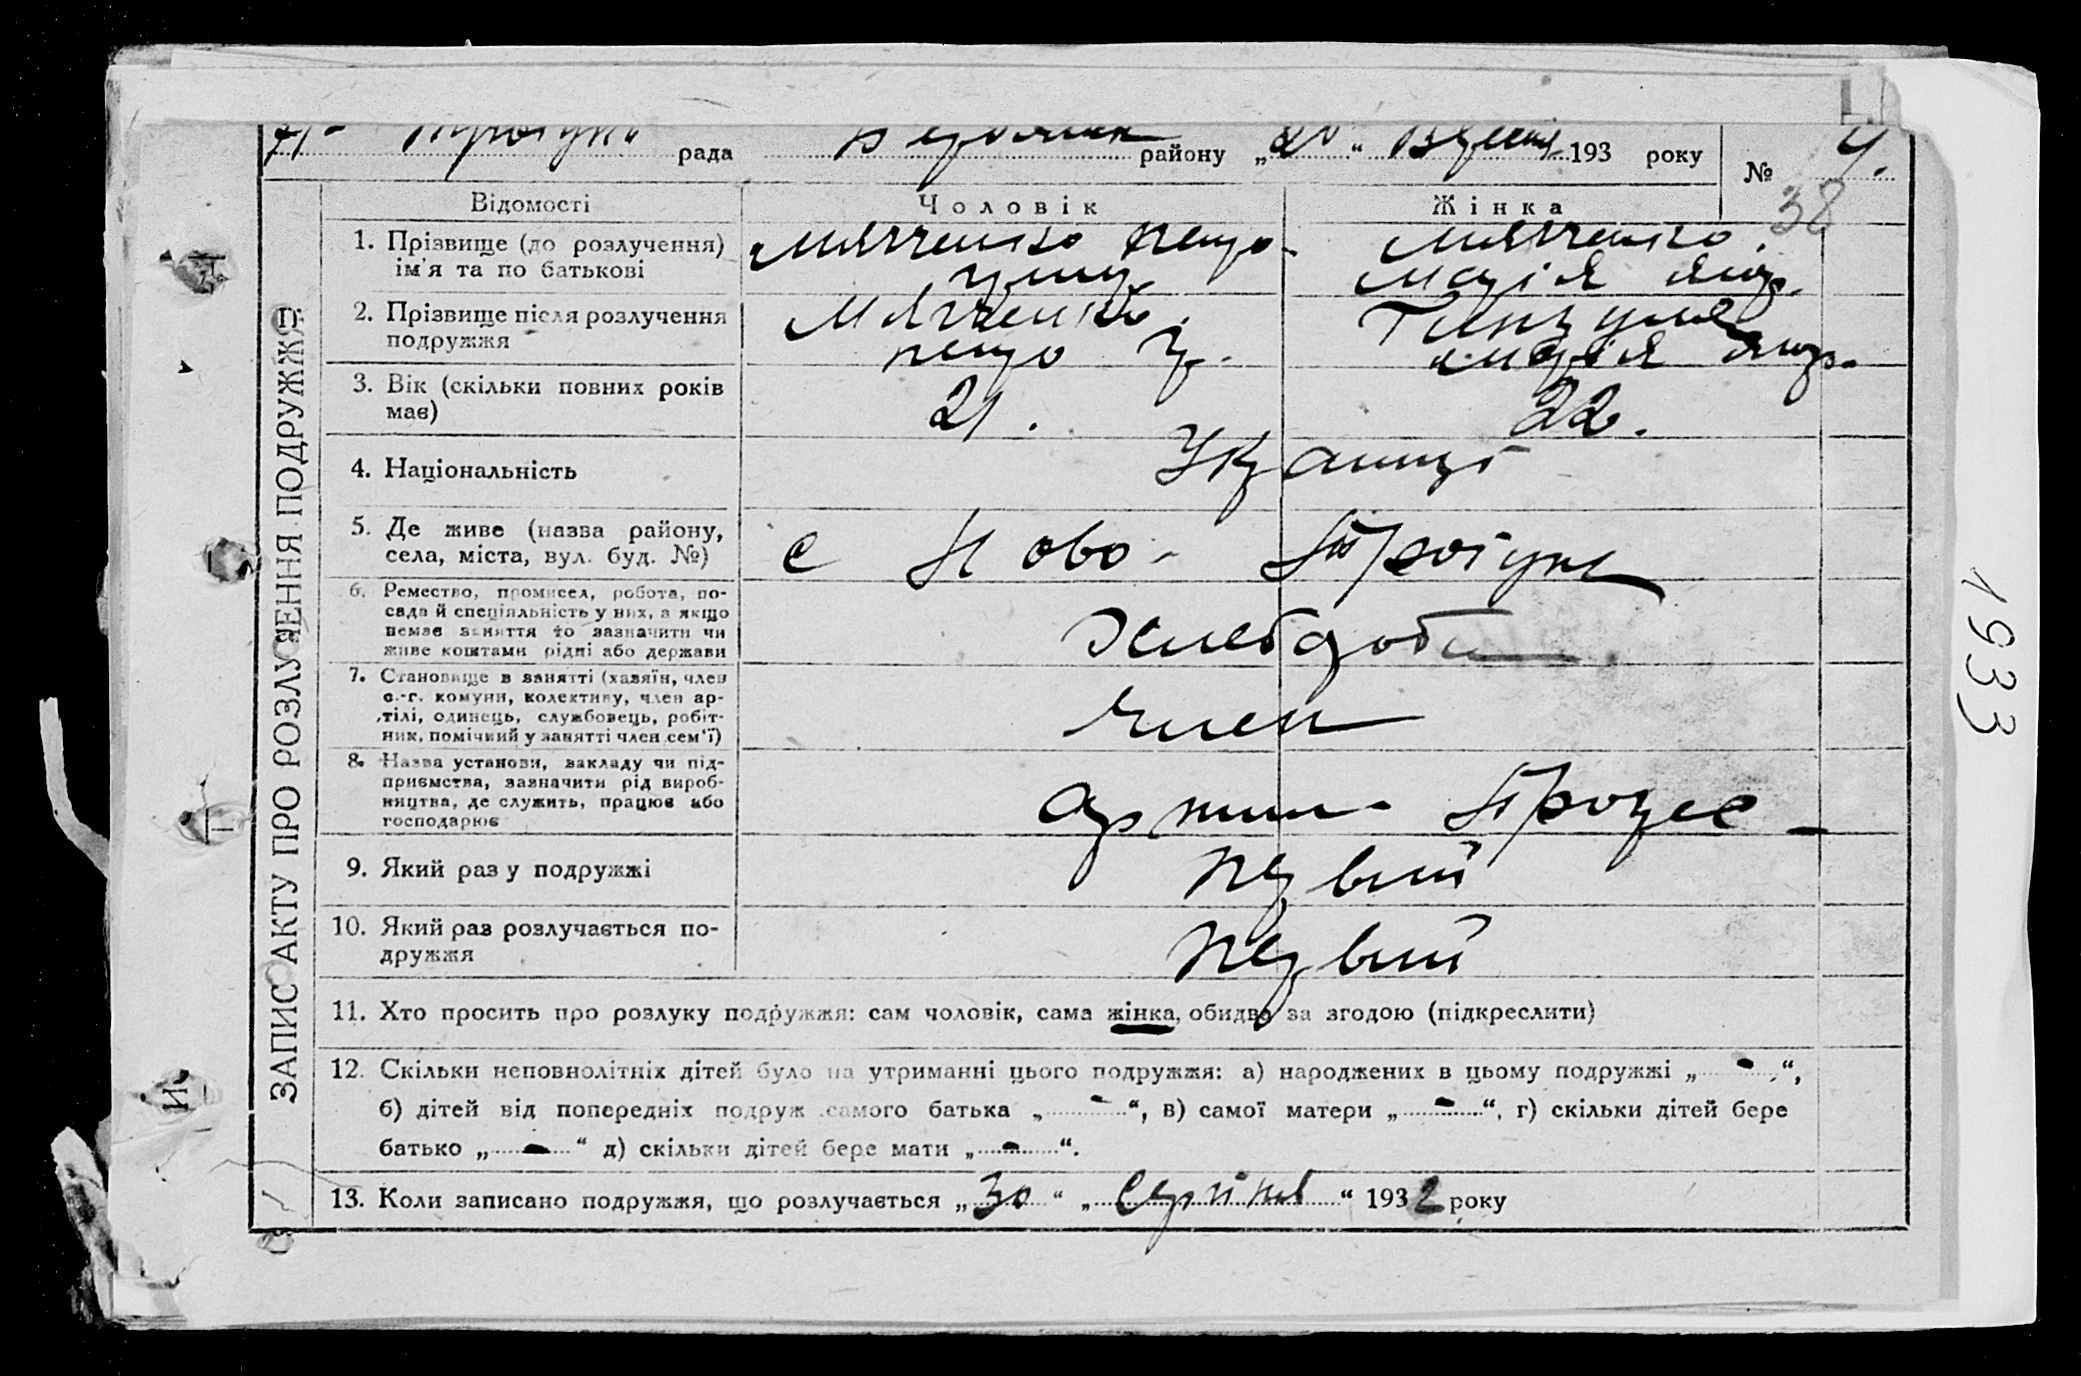 рада району „20“ 193 року № 4.
38
Відомості Чоловік Жінка
1. Прізвище (до розлучення)
ім'я та по батькові
2. Прізвище після розлучення
подружжя
3. Вік (скільки повних років
має)
21. 22.
4. Національність
Українці
5. Де живе (назва району,
села, міста, вул. буд. №)
с Ново-
6. Ремество, промисел, робота, по-
сада й спеціяльність у них, а якщо
немає заняття то зазначити чи
живе коштами рідні або держави
Хлебороби
7. Становище в занятті (хазяїн, член
с.-г. комуни, колективу, член ар-
тілі, одинець, службовець, робіт-
ник, помічний у занятті член сем'ї)
член
8. Назва установи, закладу чи під-
приємства, зазначити рід вироб-
ництва, де служить, працює або
господарює
9. Який раз у подружжі
первий
10. Який раз розлучається по-
дружжя
первий
11. Хто просить про розлуку подружжя: сам чоловік, сама жінка, обидва за згодою (підкреслити)
12. Скільки неповнолітніх дітей було на утриманні цього подружжя: а) народжених в цьому подружжі „ - “,
б) дітей від попередніх подруж самого батька „ - “, в) самої матери „ - “, г) скільки дітей бере
батько „ - “ д) скільки дітей бере мати „ - “.
13. Коли записано подружжя, що розлучається „30“ „Серпня“ 1932 року
ЗАПИС АКТУ ПРО РОЗЛУЧЕННЯ ПОДРУЖЖЯ
1933